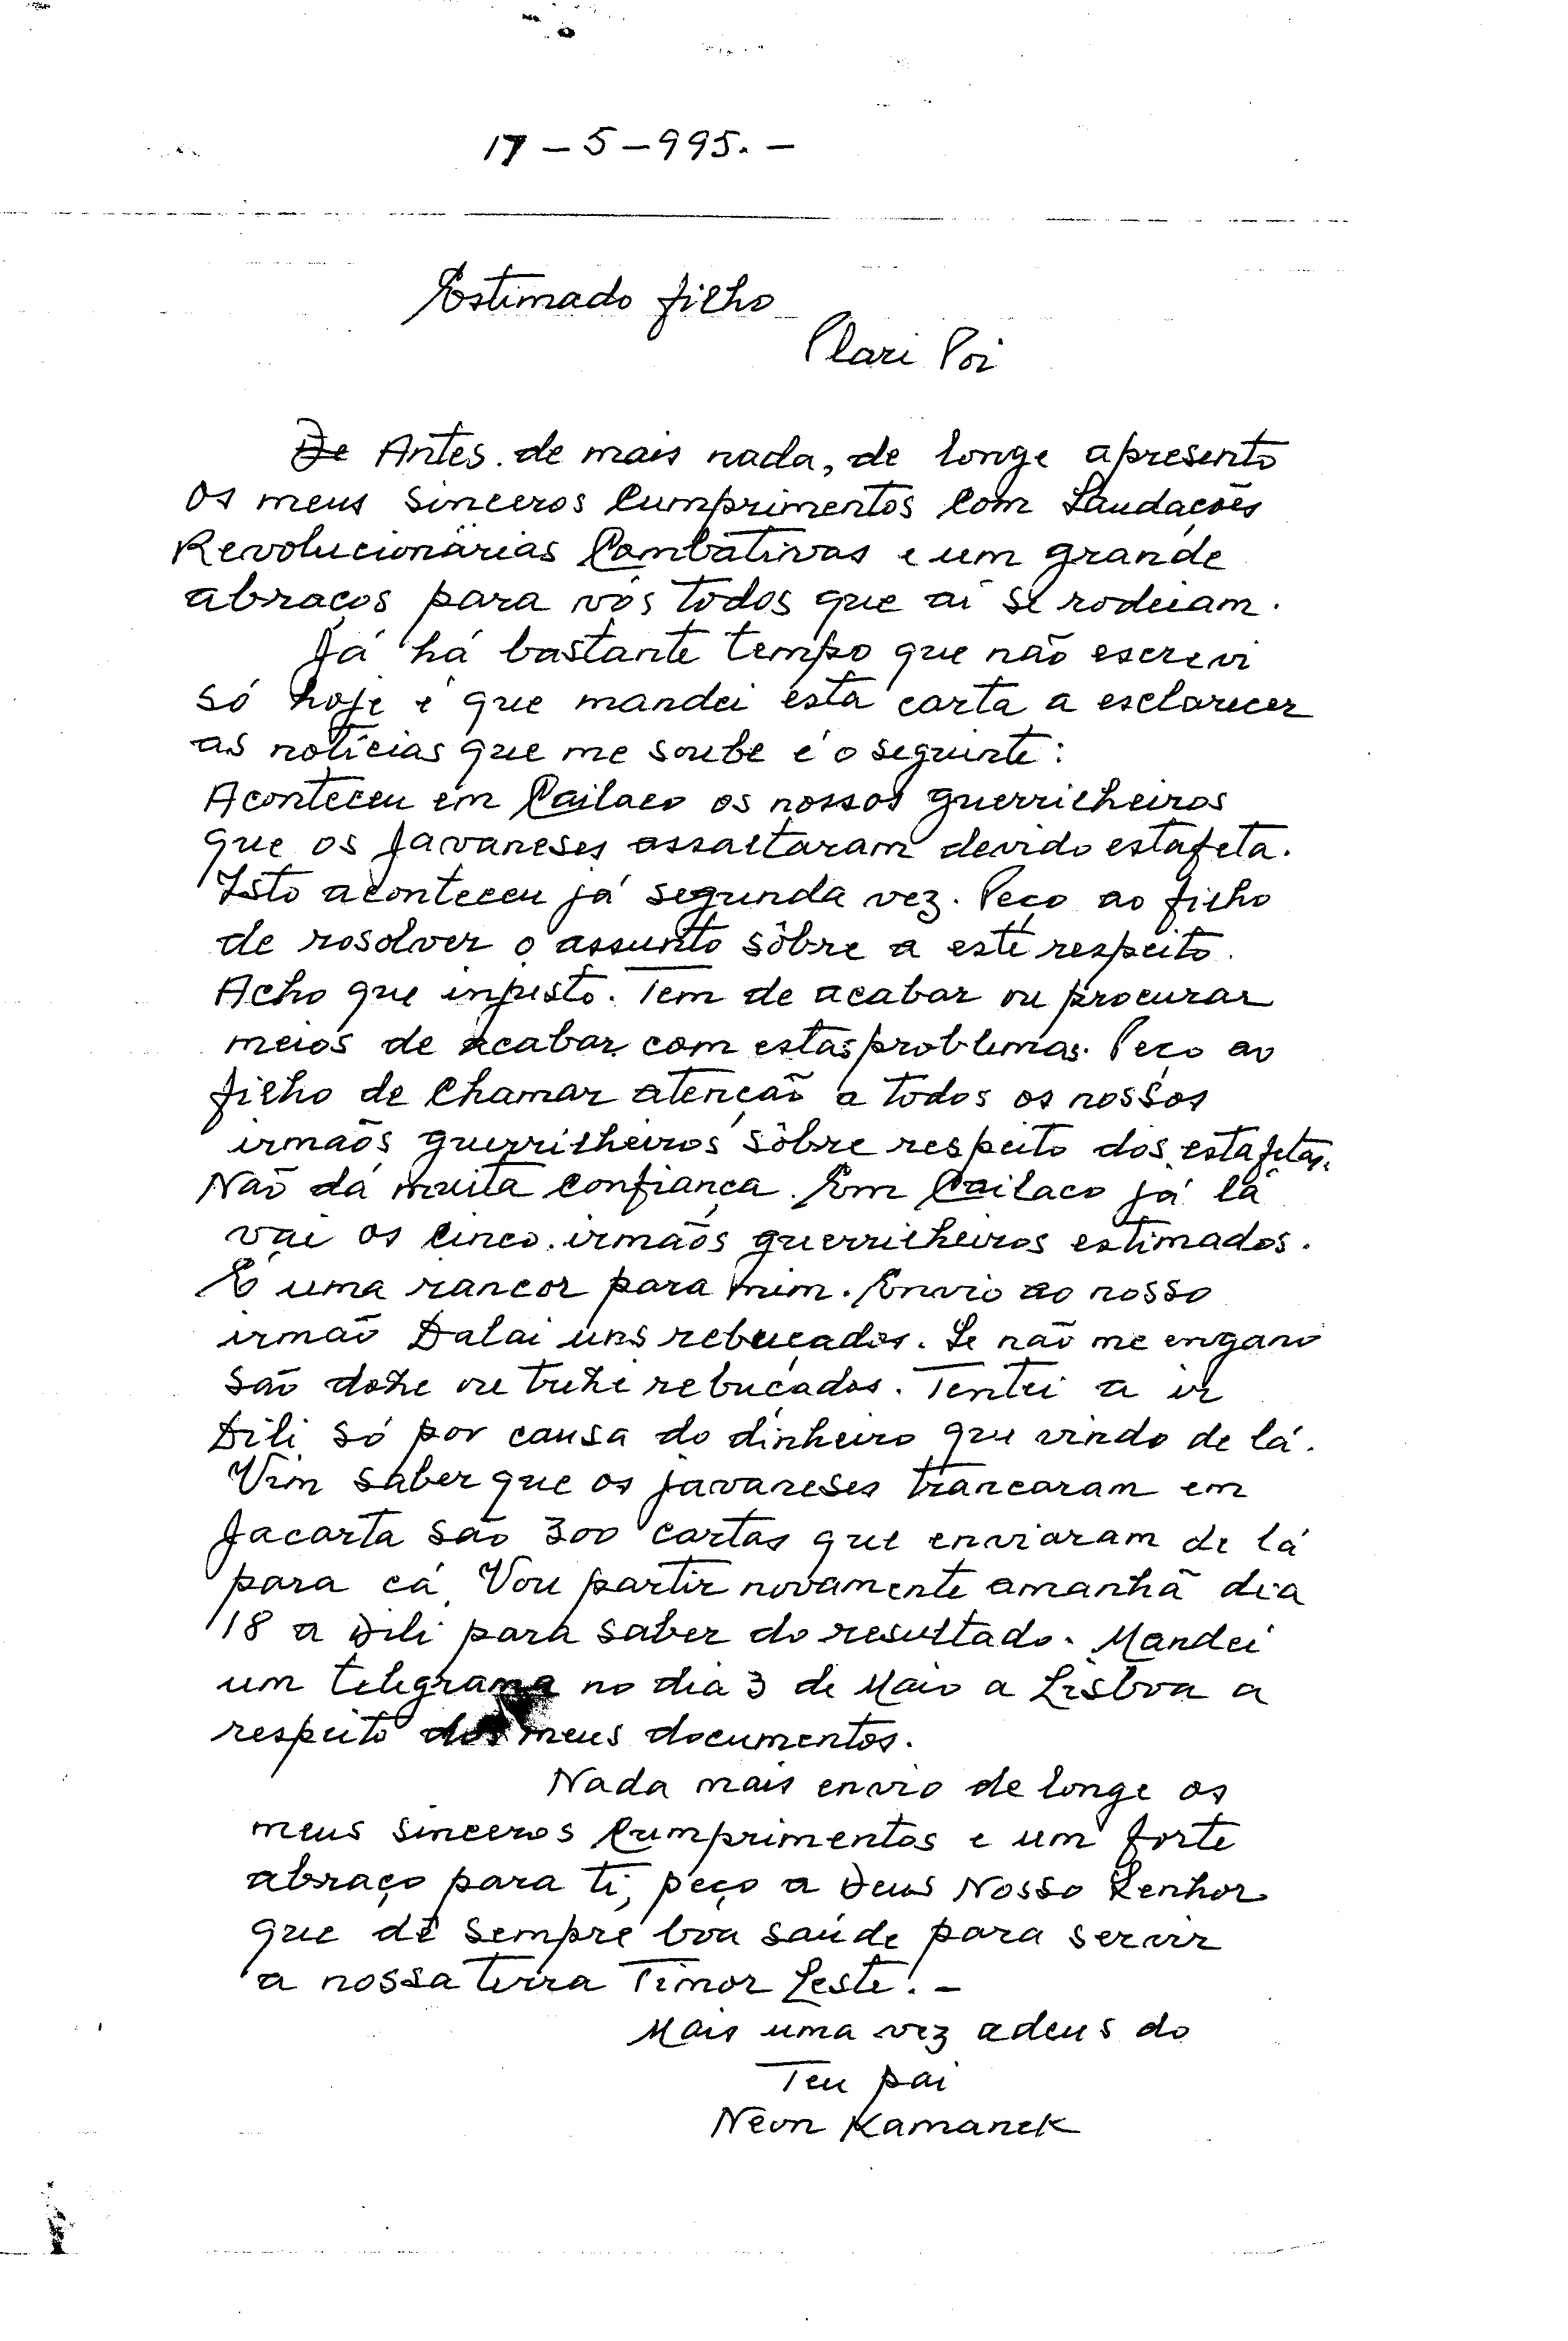 17 – 5 – 995. –
Estimado filho
Clari Poi
De Antes de mais nada, de longe apresento
os meus sinceros Cumprimentos Com Saudações
Revolucionárias Combativas e um grande
abraços para vós todos que aí se rodeiam.
Já há bastante tempo que não escrevi
só hoje é que mandei esta carta a esclarecer
as notícias que me soube é o seguinte:
Aconteceu em Cailaco os nossos guerrilheiros
que os Javaneses assaltaram devido estafeta.
Isto aconteceu já segunda vez. Peço ao filho
de rosolver o assunto sôbre a este respeito.
Acho que injusto. Tem de acabar ou procurar
meios de acabar com estas problemas. Peço ao
filho de Chamar atenção a todos os nossos
irmãos guerrilheiros sôbre respeito dos estafetas.
Não dá muita Confiança. Em Cailaco já lá
vai os cinco irmãos guerrilheiros estimados.
É uma rancor para mim. Envio ao nosso
irmão Dalai uns rebuçados. Se não me engano
são doze ou treze rebuçados. Tentei a ir
Dili só por causa do dinheiro que vindo de lá.
Vim saber que os javaneses trancaram em
Jacarta são 300 cartas que enviaram de lá
para cá. Vou partir novamente amanhã dia
18 a Dili para saber do resultado. Mandei
um telegrama no dia 3 de Maio a Lisboa a
respeito dos meus documentos.
Nada mais envio de longe os
meus sinceros Cumprimentos e um forte
abraço para ti, peço a Deus Nosso Senhor
que dê sempre boa saúde para servir
a nossa terra Timor Leste. –
Mais uma vez adeus do
Teu pai
Neon Kamanek